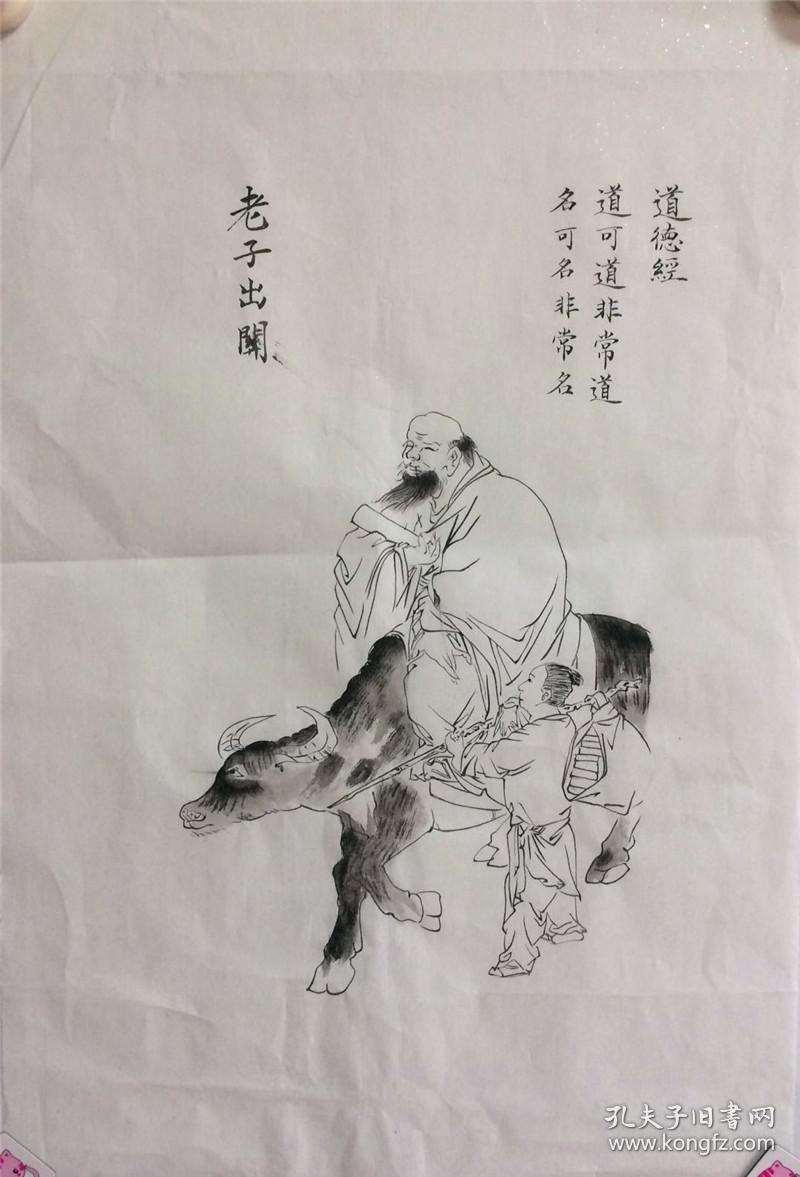 道德經
道可道非常道
名可名非常名
老子出關
孔夫子旧書网
www.kongfz.com